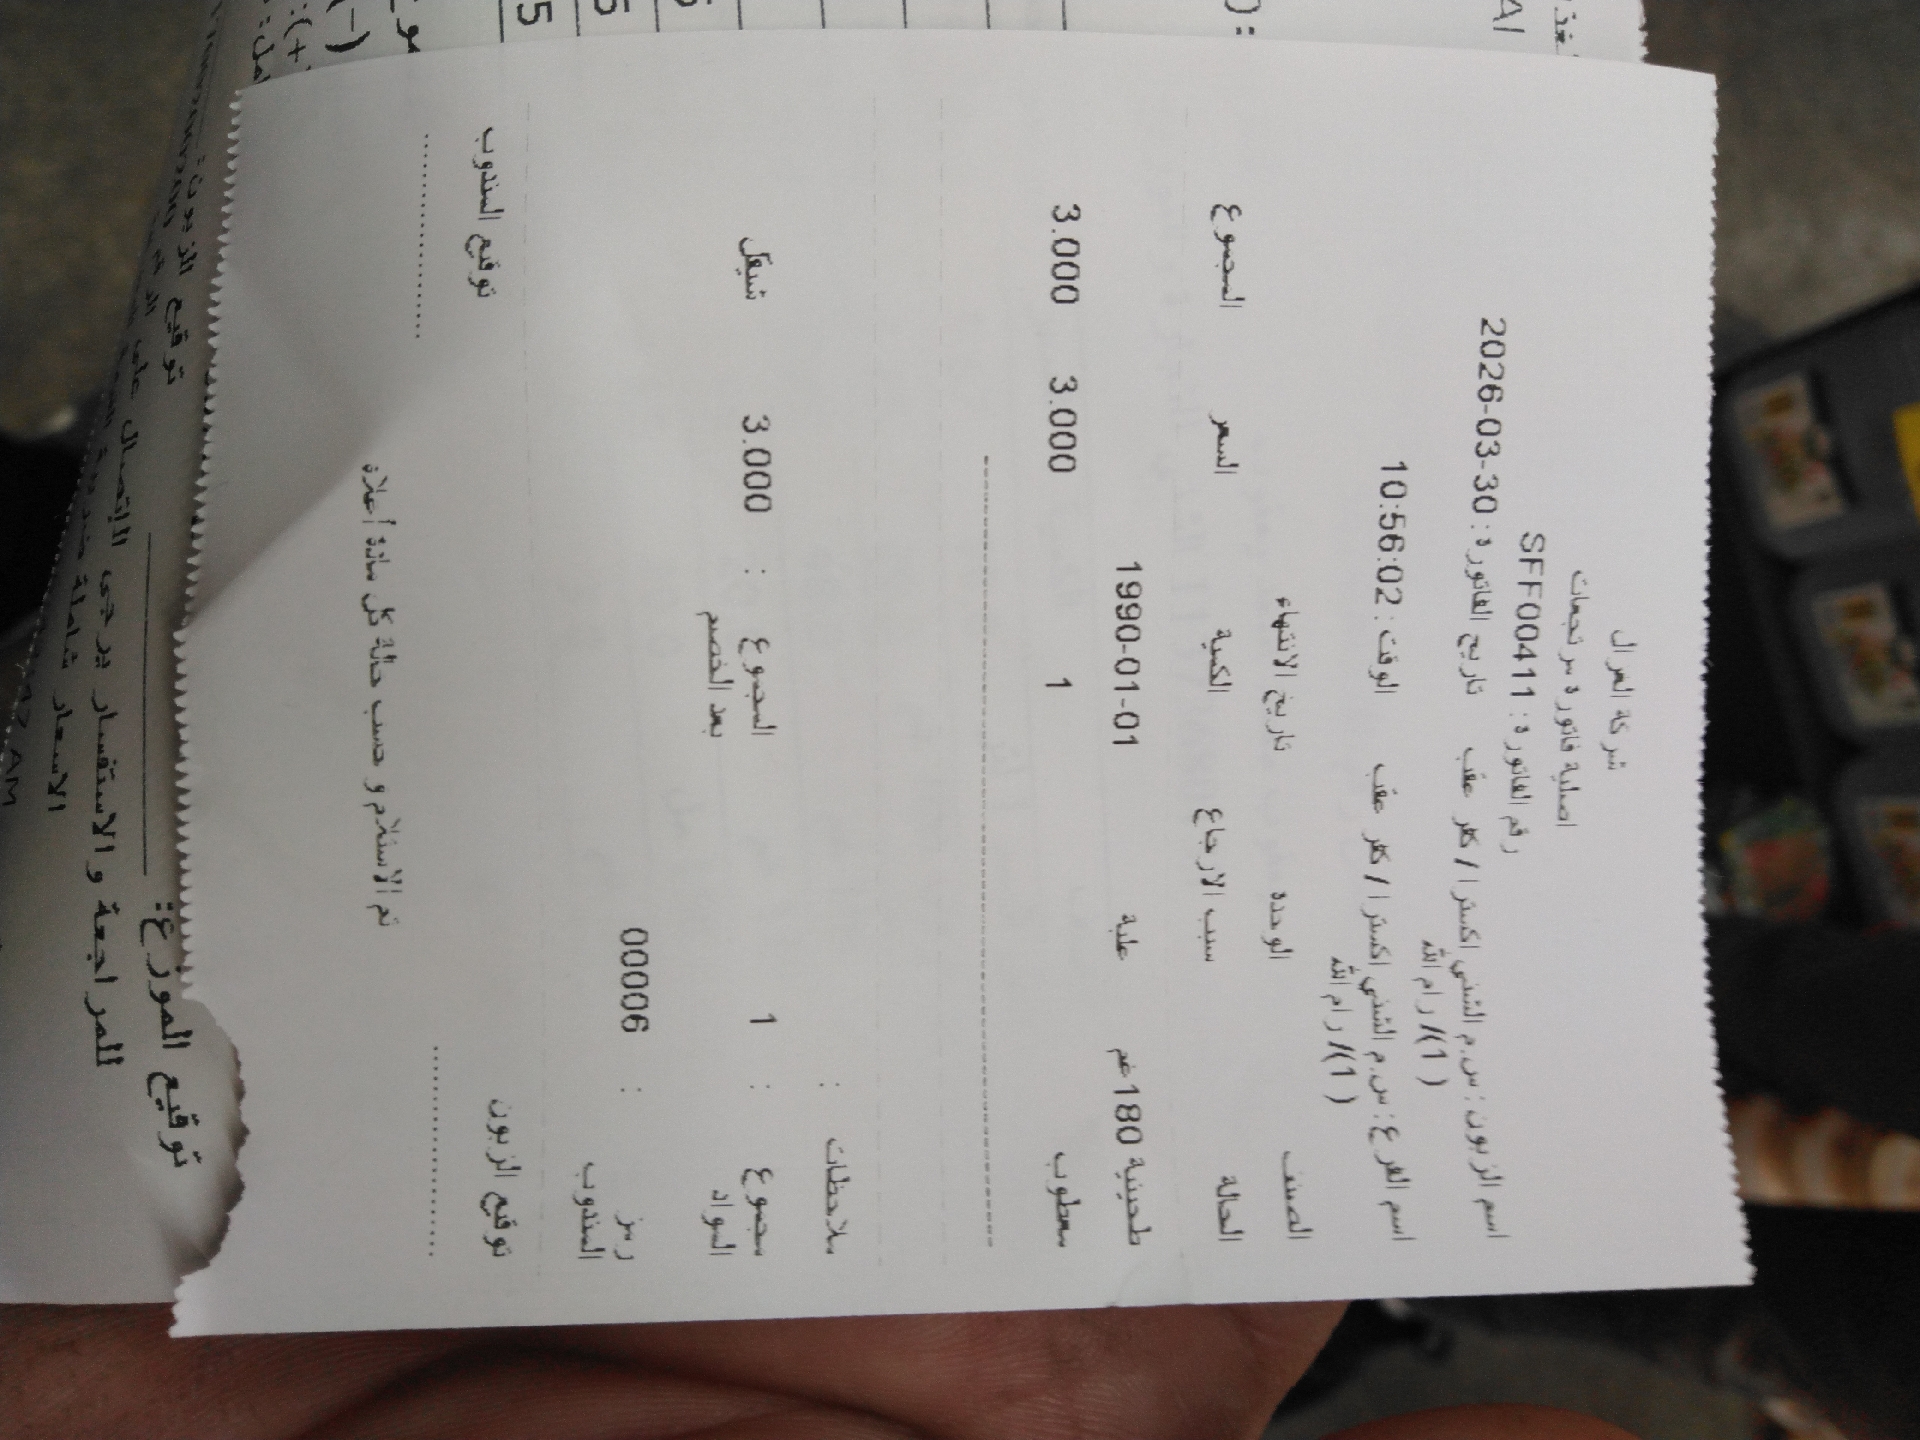 شركة الغزال
اصلية فاتورة مرتجعات
رقم الفاتورة : SFF00411
تاريخ الفاتورة : 2026-03-30
اسم الزبون : س.م الشني اكسترا / كفر عقب
( 1)/ رام الله
الوقت : 10:56:02
اسم الفرع : س.م الشني اكسترا / كفر عقب
( 1)/ رام الله
الصنف الوحدة تاريخ الانتهاء
الحالة سبب الارجاع الكمية السعر المجموع
طحينية 180غم علبة 1990-01-01
معطوب 1 3.000 3.000
ملاحظات :
مجموع المواد : 1 المجموع بعد الخصم : 3.000 شيقل
رمز المندوب : 00006
توقيع الزبون توقيع المندوب
تم الاستلام و حسب حالة كل مادة أعلاة
توقيع الموزع:
توقيع الزبون:
للمراجعة و الاستفسار يرجى الإتصال على
الاسعار شاملة